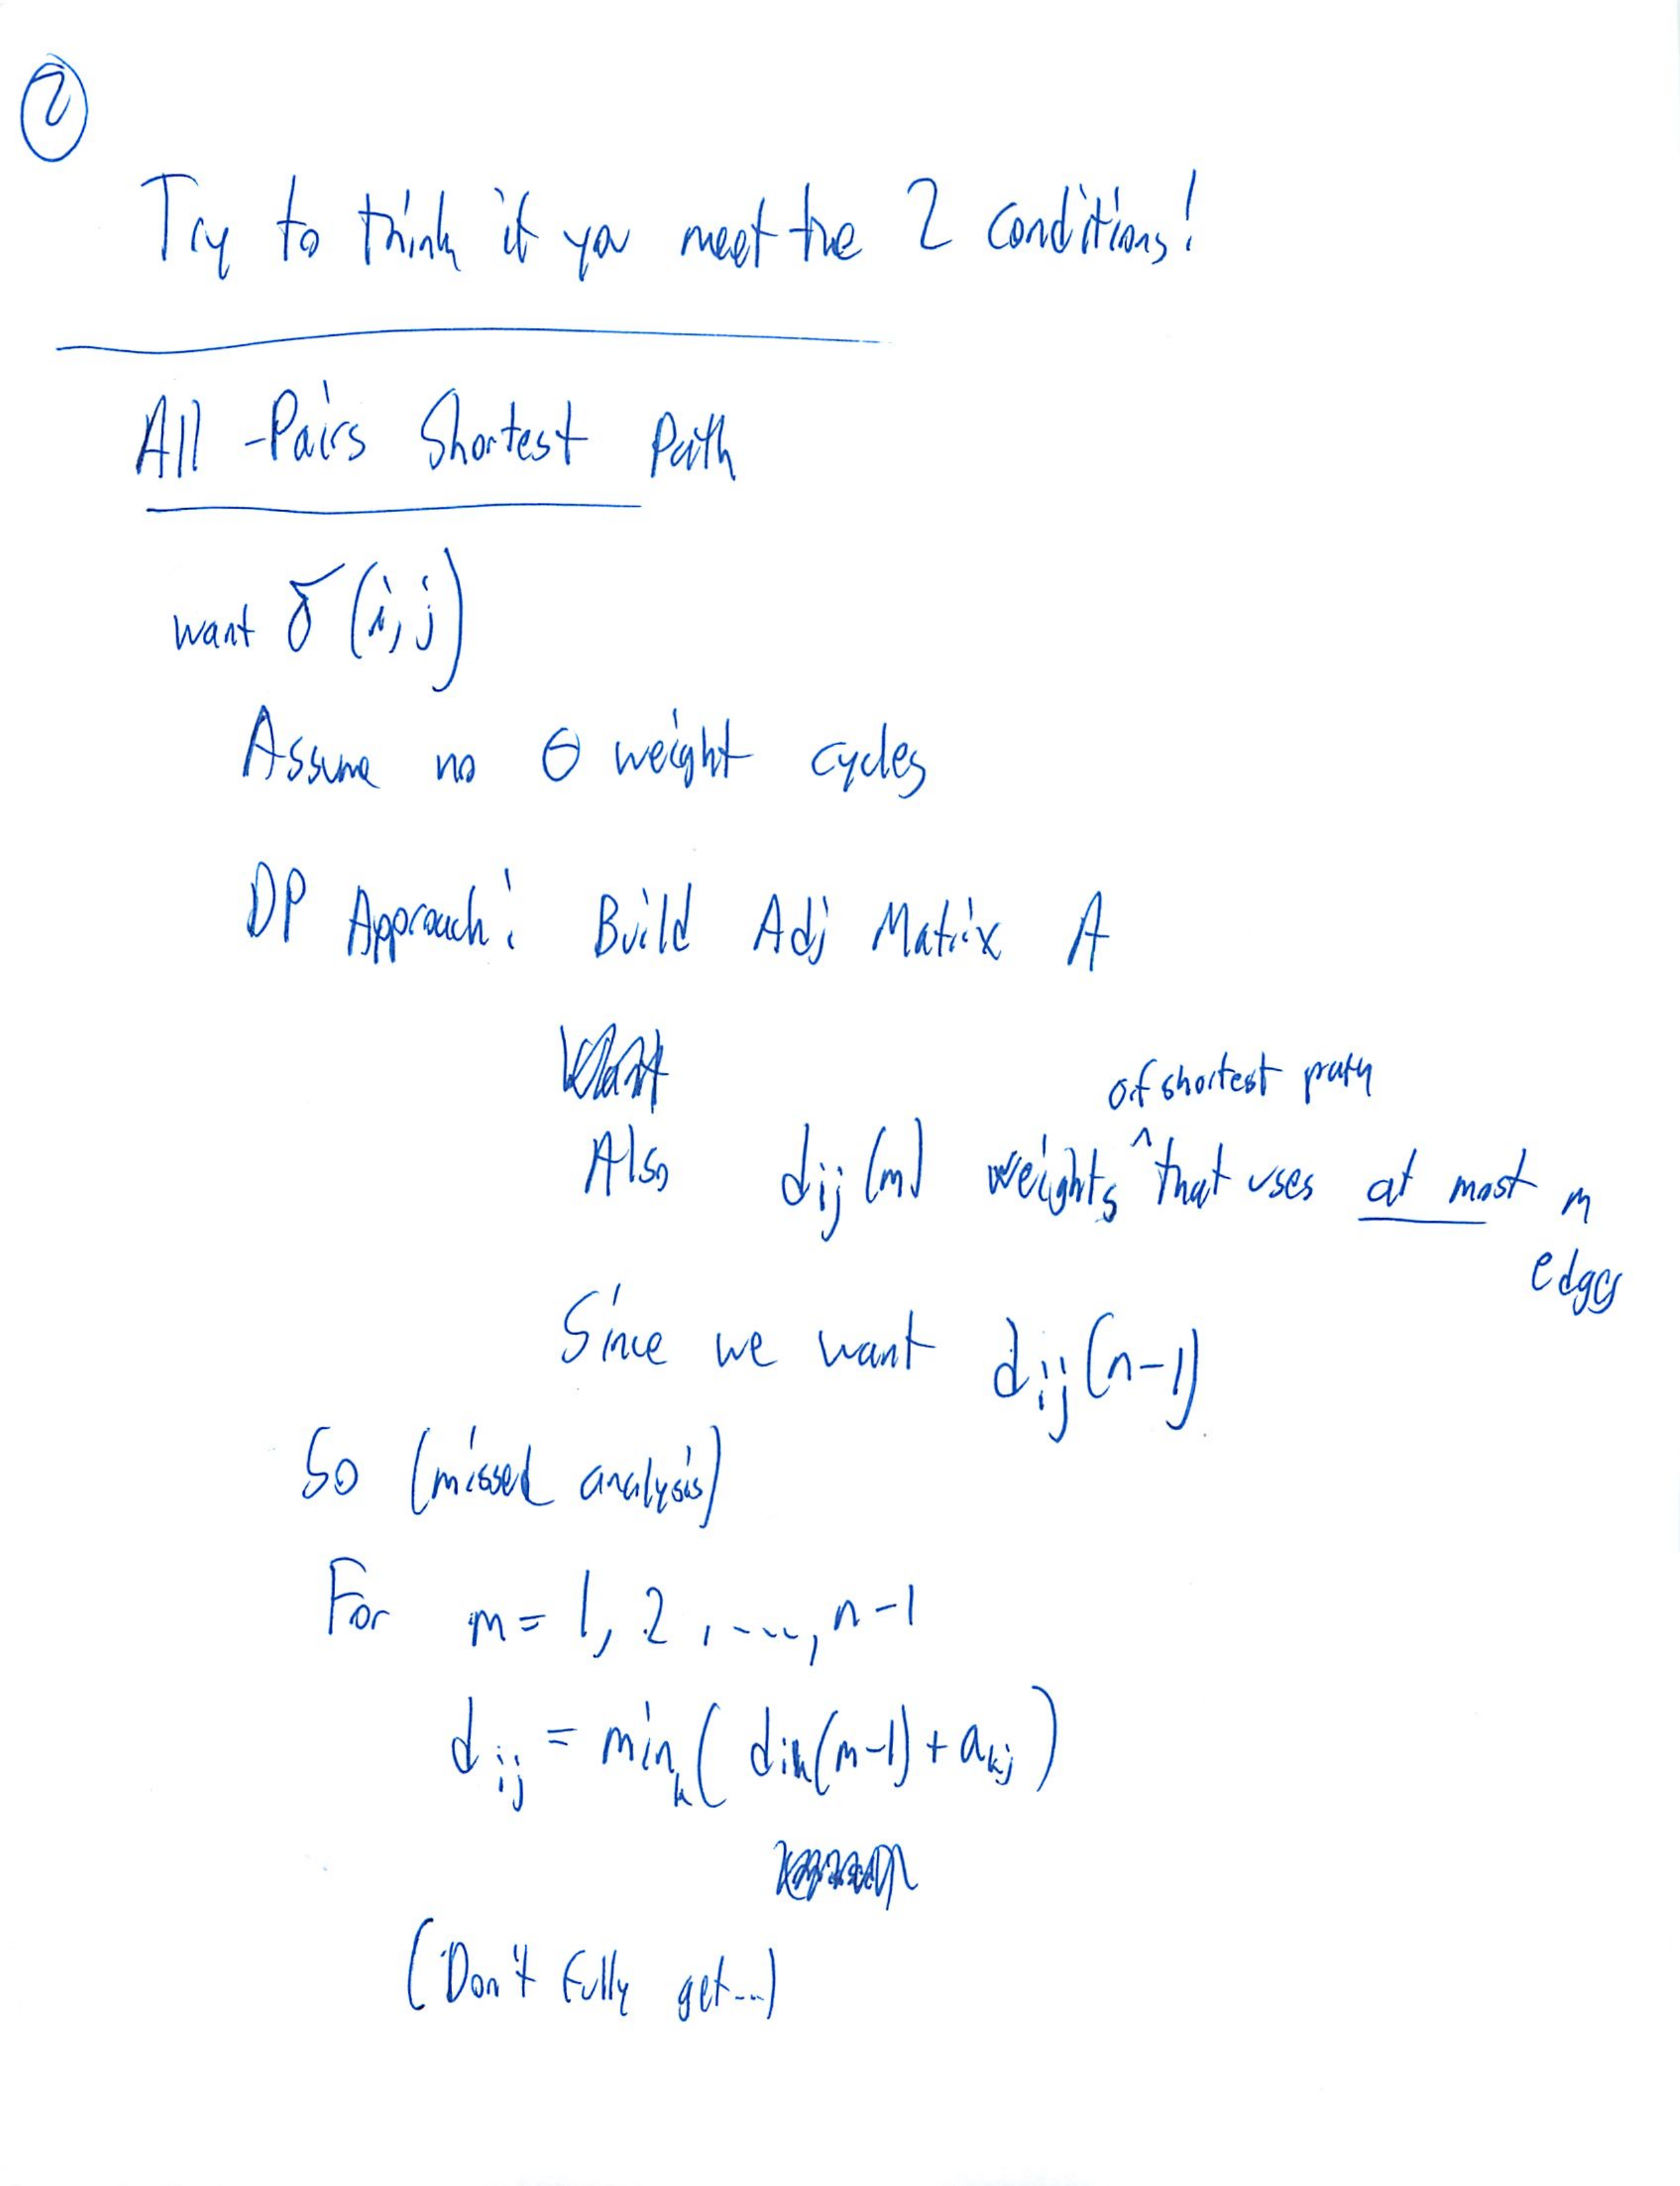 2
Try to think if you meet the 2 conditions!
All-Pairs Shortest Path
want δ(i,j)
Assume no ⊖ weight cycles
DP Approach: Build Adj Matrix A
Want
of shortest path
Also dij(m) weights ^ that uses at most m
edges
Since we want dij(n-1)
So (missed analysis)
For m = 1, 2, ..., n-1
dij = mink( dik(m-1) + akj )
(Don't fully get...)